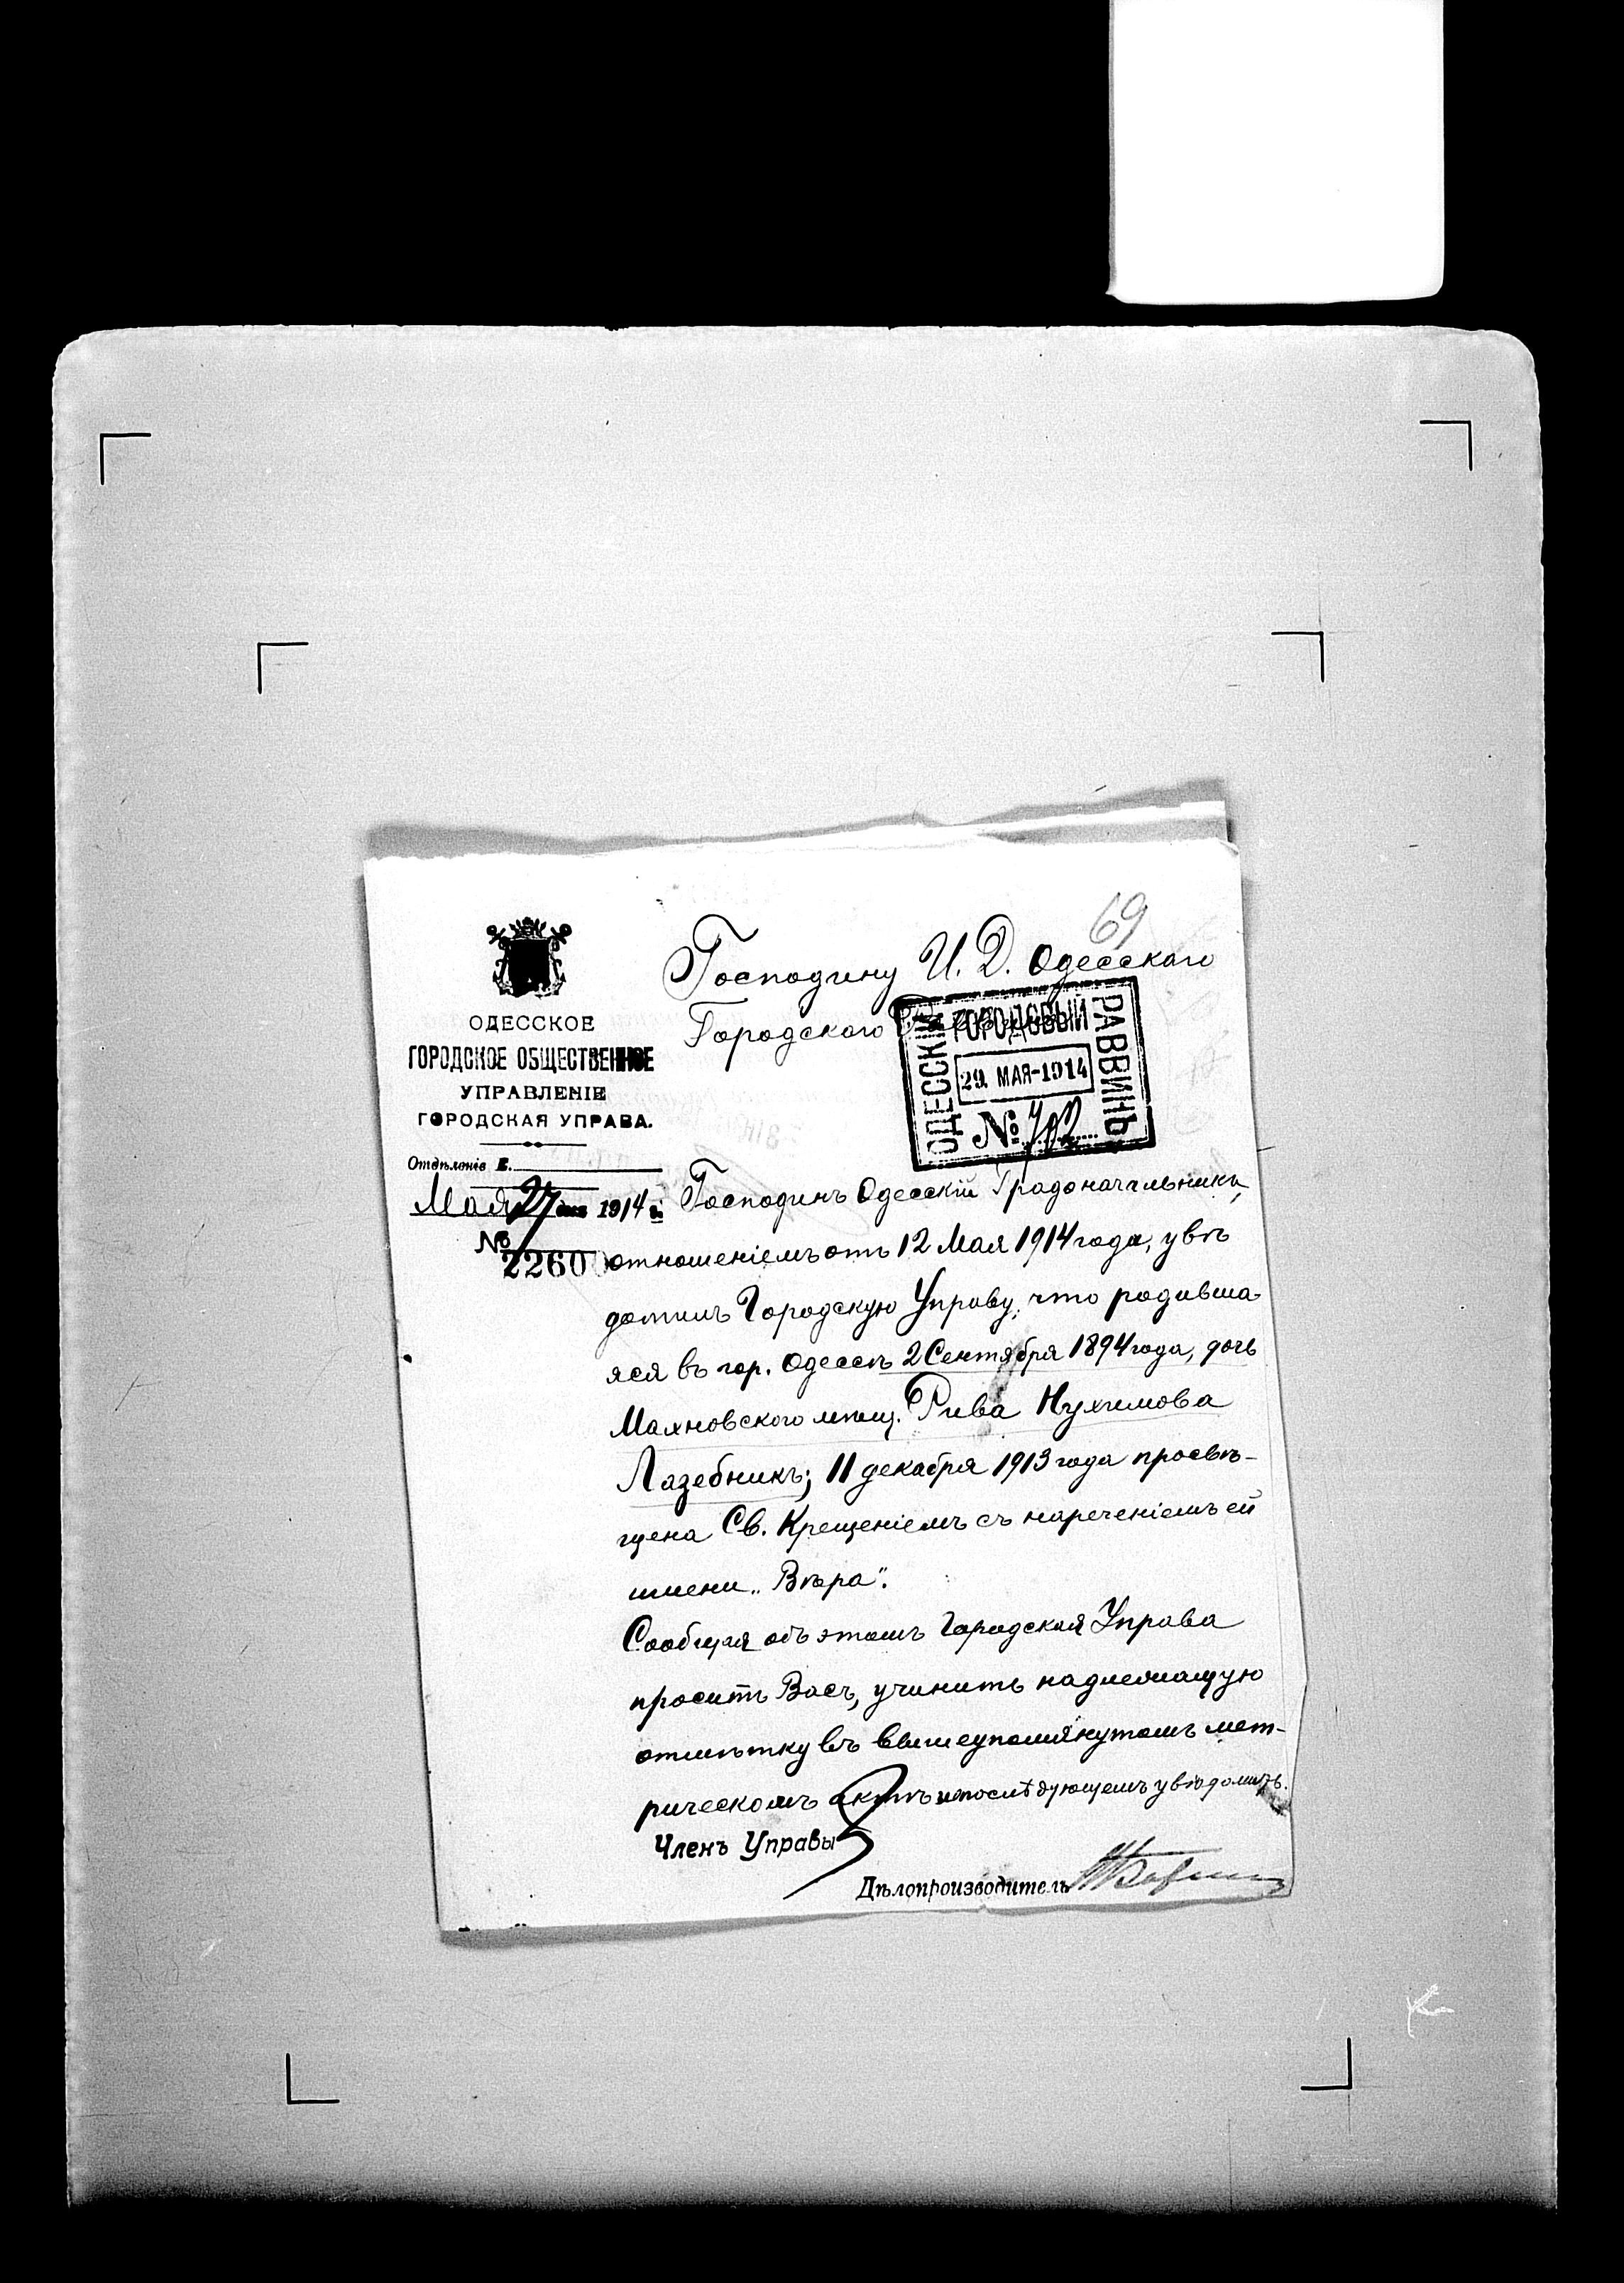 69
ОДЕССКОЕ
ГОРОДСКОЕ ОБЩЕСТВЕННОЕ
УПРАВЛЕНІЕ
ГОРОДСКАЯ УПРАВА.
Отдѣленіе
Мая 27 дня 1914 г.
№ 2260
Господину И. Д. Одесскаго
Городского
ОДЕССКІЙ ГОРОДОВЫЙ РАВВИНЪ
29. МАЯ-1914
№
Господинъ Одесскій Градоначальникъ,
отношеніемъ отъ 12 Мая 1914 года, увѣ
домилъ Городскую Управу, что родивша
яся въ гор. Одессѣ 2 Сентября 1894 года, дочь
Махновского мѣщ. Рива Нухимова
Лазебникъ; 11 декабря 1913 года просвѣ-
щена Св. Крещеніемъ съ нареченіемъ ей
имени „Вѣра".
Сообщая объ этомъ Городская Управа
проситъ Васъ, учинить надлежащую
отмѣтку въ вышеупомянутомъ мет-
рическомъ актѣ и о послѣдующемъ увѣдомить.
Членъ Управы
Дѣлопроизводитель